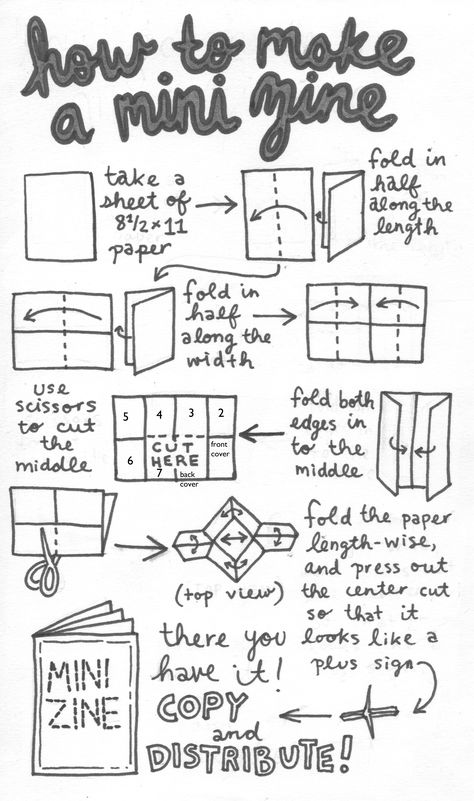 how to make
a mini zine
take a
sheet of
8½ x 11
paper
fold in
half
along the
length
fold in
half
along the
width
fold both
edges in
to the
middle
5 4 3 2
CUT
HERE
front
cover
6 7 back
cover
use
scissors
to cut
the
middle
(top view)
fold the paper
length-wise,
and press out
the center cut
so that it
looks like a
plus sign
there you
have it!
COPY
and
DISTRIBUTE!
MINI
ZINE